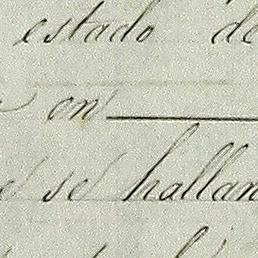 estado de
en
se hallan